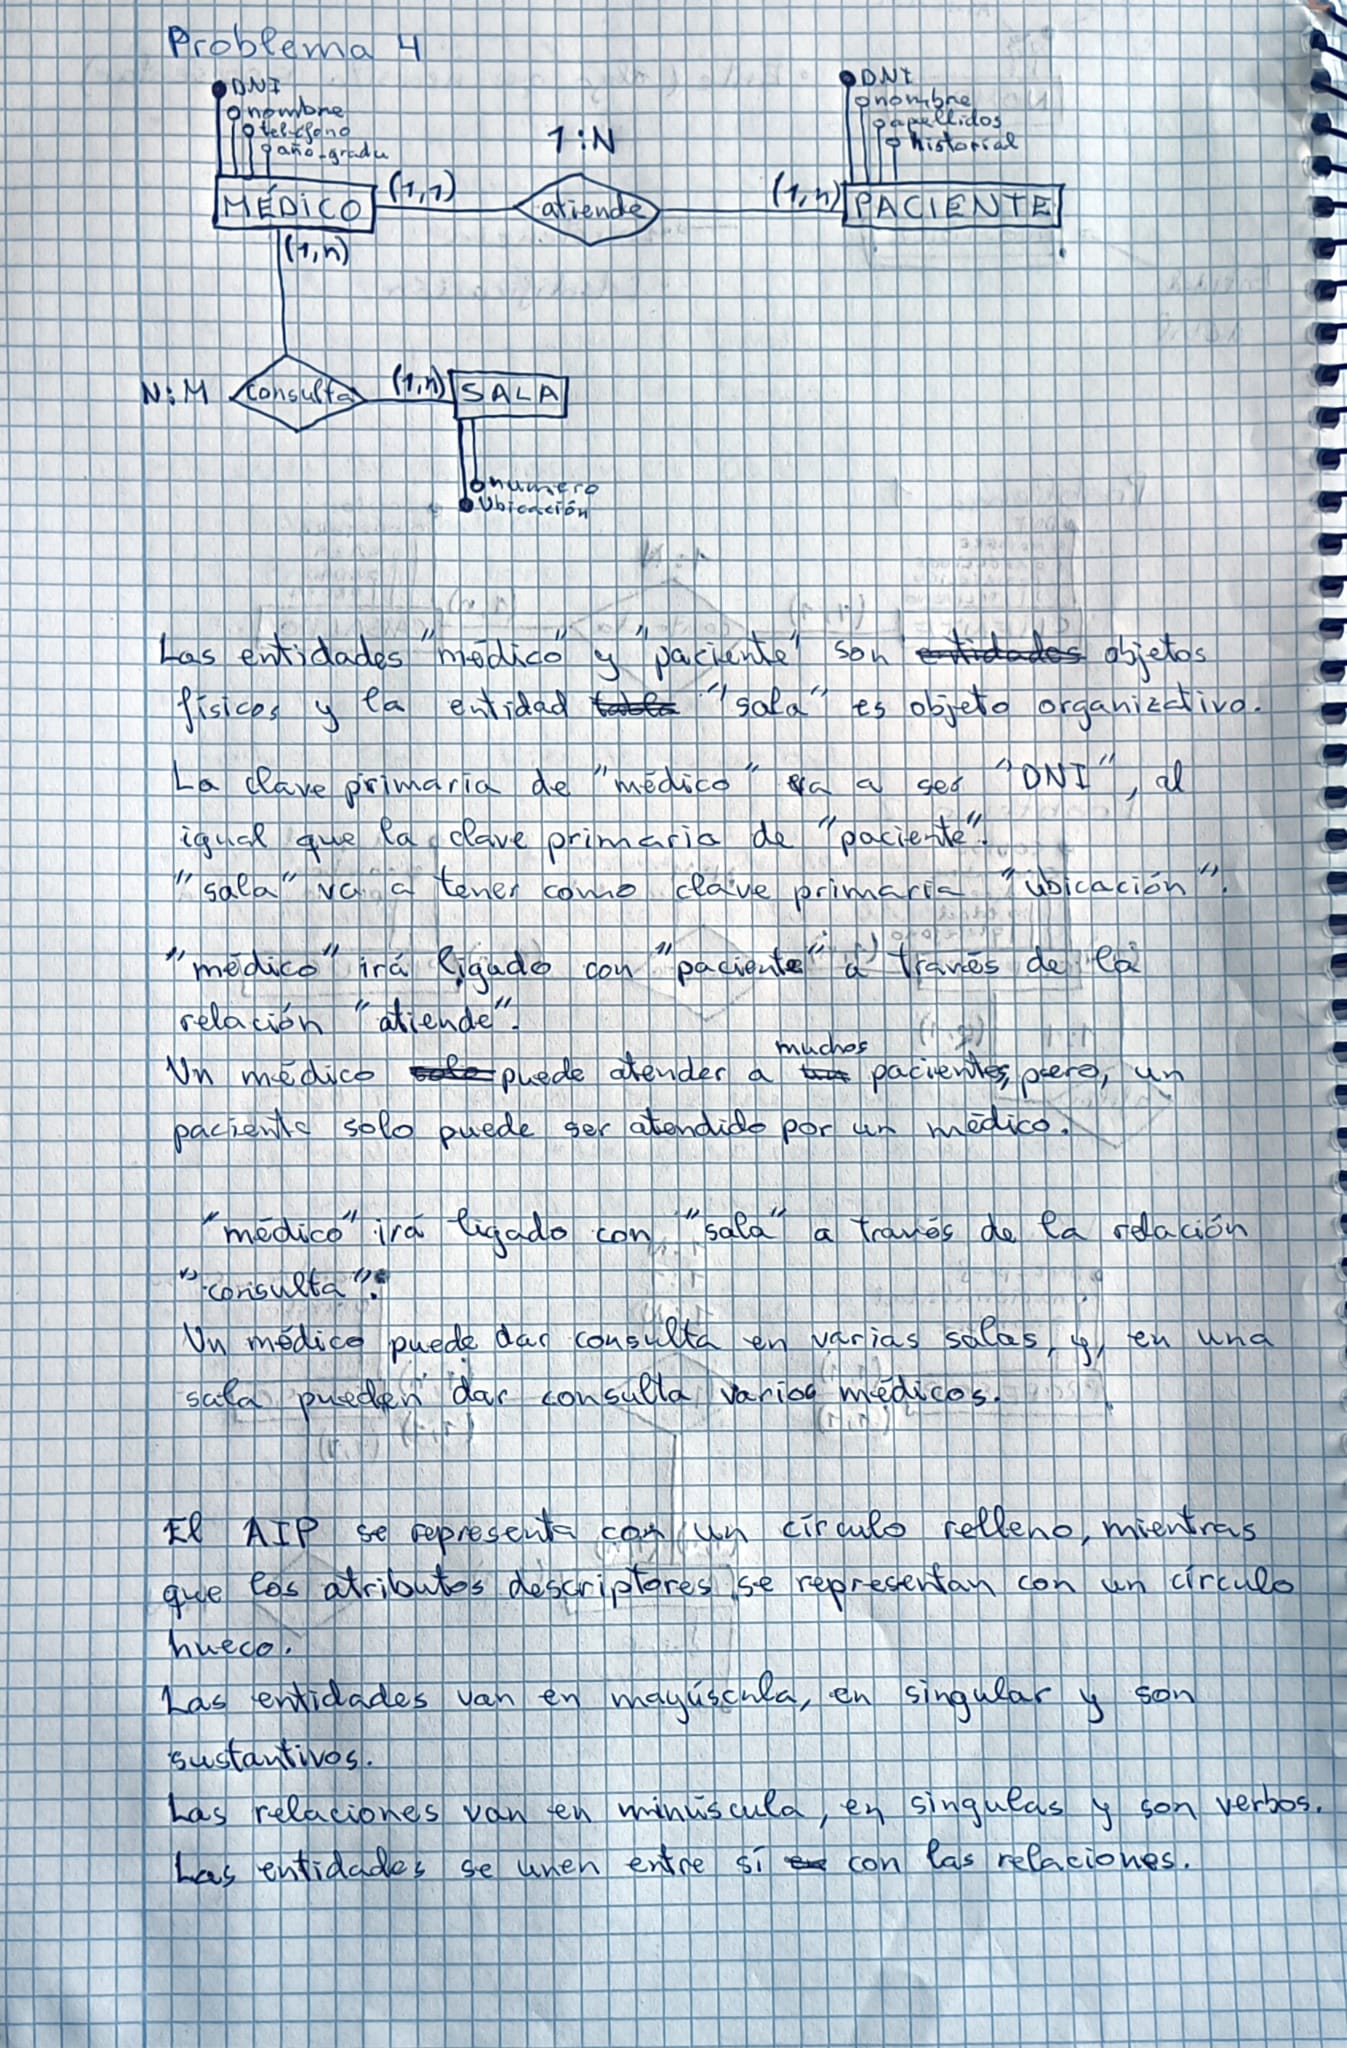 Problema 4
DNI
nombre
teléfono
año-gradu
DNI
nombre
apellidos
historial
1:N
MÉDICO
(1,1)
atiende
(1,n)
PACIENTE
(1,n)
N:M
consulta
(1,n)
SALA
numero
Ubicación
Las entidades "médico" y "paciente" son entidades objetos
físicos y la entidad tabla "sala" es objeto organizativo.
La clave primaria de "médico" va a ser "DNI", al
igual que la clave primaria de "paciente".
"sala" va a tener como clave primaria "ubicación".
"médico" irá ligado con "paciente" a través de la
relación "atiende".
muchos
Un médico solo puede atender a pacientes, pero, un
paciente solo puede ser atendido por un médico.
"médico" irá ligado con "sala" a través de la relación
"consulta".
Un médico puede dar consulta en varias salas, y, en una
sala pueden dar consulta varios médicos.
El AIP se representa con un círculo relleno, mientras
que los atributos descriptores se representan con un círculo
hueco.
Las entidades van en mayúscula, en singular y son
sustantivos.
Las relaciones van en minúscula, en singulas y son verbos.
Las entidades se unen entre sí con las relaciones.